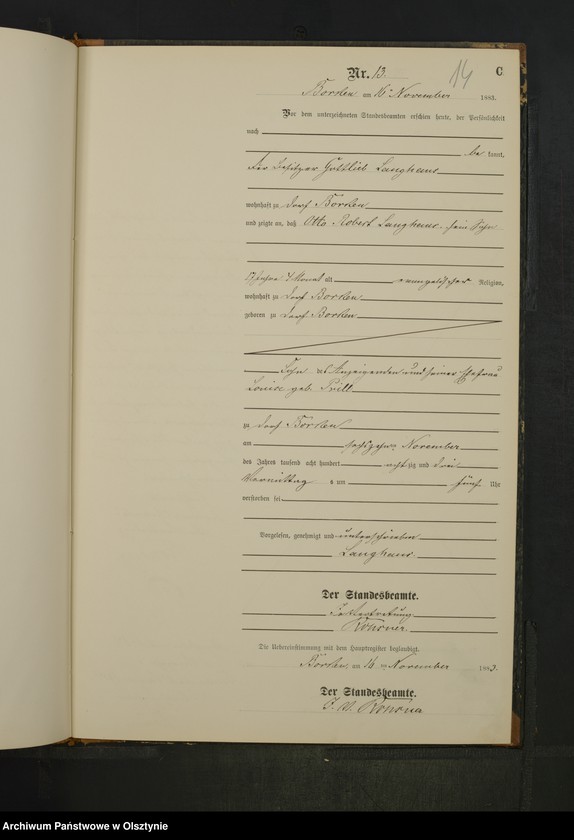 Nr. 13.
14
C
Borken am 16ten November 1883.
Vor dem unterzeichneten Standesbeamten erschien heute, der Persönlichkeit
nach
be kannt,
der Besitzer Gottlieb Langhans
wohnhaft zu Dorf Borken
und zeigte an, daß Otto Robert Langhans, sein Sohn
17 Jahre 4 Monat alt evangelischer Religion,
wohnhaft zu Dorf Borken
geboren zu Dorf Borken
Sohn des Anzeigenden und seiner Ehefrau
Louise geb. Prill
zu Dorf Borken
am sechszehnten November
des Jahres tausend acht hundert acht zig und drei
Vormittag s um fünf Uhr
verstorben sei
Vorgelesen, genehmigt und unterschrieben
Langhans
Der Standesbeamte.
In Vertretung
Die Uebereinstimmung mit dem Hauptregister beglaubigt.
Borken, am 16ten November 1883.
Der Standesbeamte.
I. V.
Archiwum Państwowe w Olsztynie